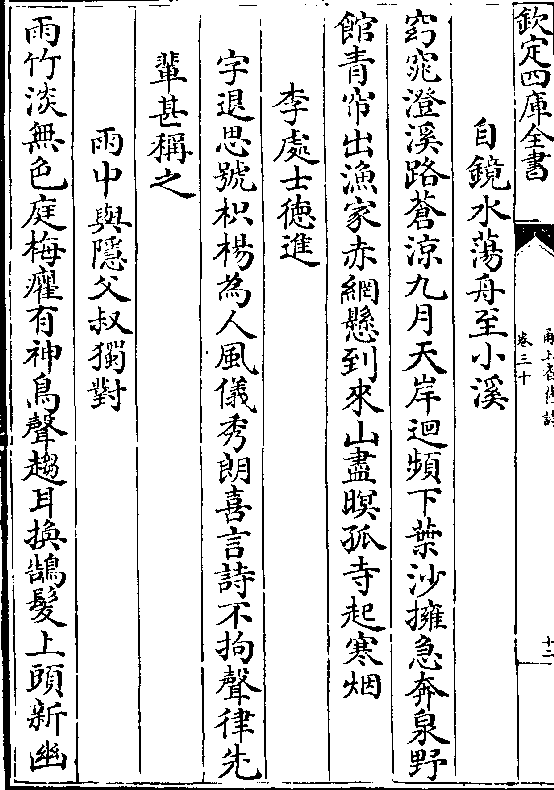 欽定四庫全書
卷三十
十二
自鏡水蕩舟至小溪
窈窕澄溪路蒼涼九月天岸迴頻下葉沙擁急奔泉野
館青帘出漁家赤網懸到來山盡暝孤寺起寒烟
李處士德進
字退思號枳楊為人風儀秀朗喜言詩不拘聲律先
輩甚稱之
雨中與隱父叔獨對
雨竹淡無色庭梅癯有神鳥聲趨耳換鵠髪上頭新幽